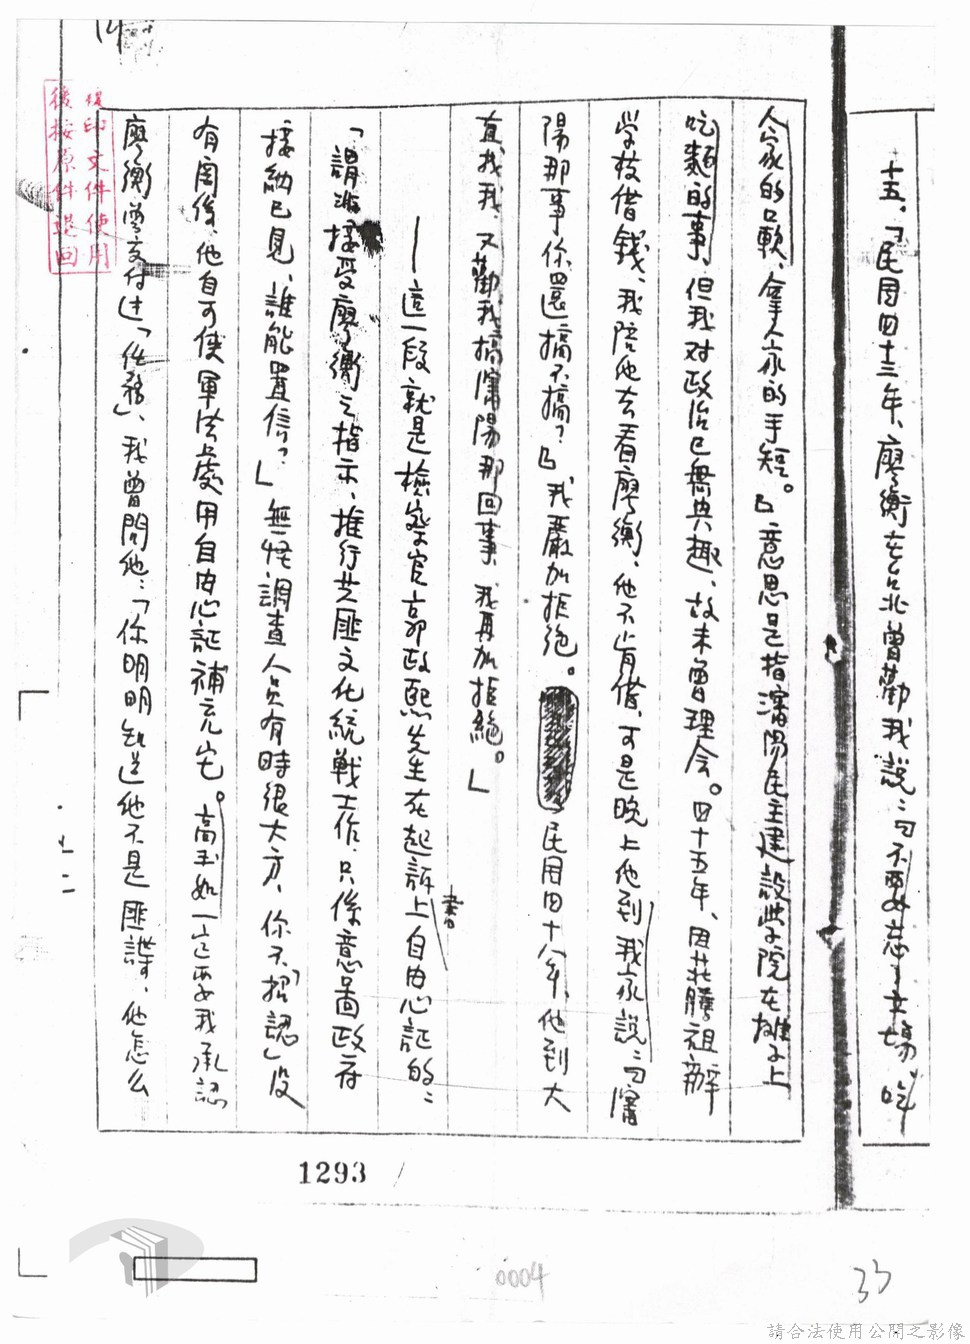 十五、「民國四十三年、廖衡在台北曾勸我說：『不要忘了立場，吃
人家的口軟、拿人家的手短。』意思是指瀋陽民主建設學院在攤子上
吃麵的事、但我对政治已無興趣、故未曾理会。四十五年、因莊騰祖辦
学校借錢、我陪他去看廖衡、他不肯借、可是晚上他到我家說：『瀋
陽那事你還搞不搞？』我嚴加拒絕。民國四十八年、他到大
直找我、又勸我搞瀋陽那回事、我再加拒絕。」
——這一段就是檢察官郭政熙先生在起訴書上自由心証的：
「謂派接受廖衡之指示、推行共匪文化統戰工作、只係意圖政府
接納已見、誰能置信？」無怪調查人員有時很大方、你不「招認」沒
有関係、他自可使軍法處用自由心証補充它。高玉如一定要我承認
廖衡曾交付过「任務」、我曾問他：「你明明知道他不是匪諜、他怎么
複印文件使用
後按原件退回
14
1293
0004
33
請合法使用公開之影像